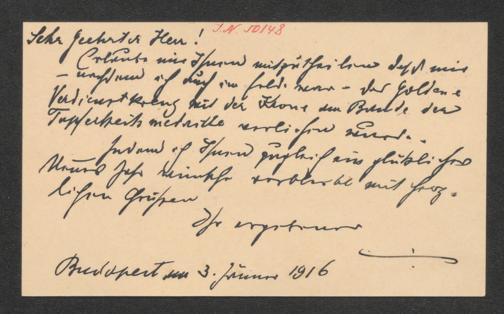 I.N. 50148
Sehr geehrter Herr!
Erlaube mir Ihnen mitzutheilen daß mir
– nachdem ich auch im Felde war – das Goldene
Verdienstkreuz mit der Krone am Bande der
Tapferkeitsmedaille verliehen wurde.
Indem ich Ihnen zugleich ein glückliches
Neues Jahr wünsche verbleibe mit herz-
lichen Grüßen
Ihr ergebener
Budapest am 3. Jänner 1916